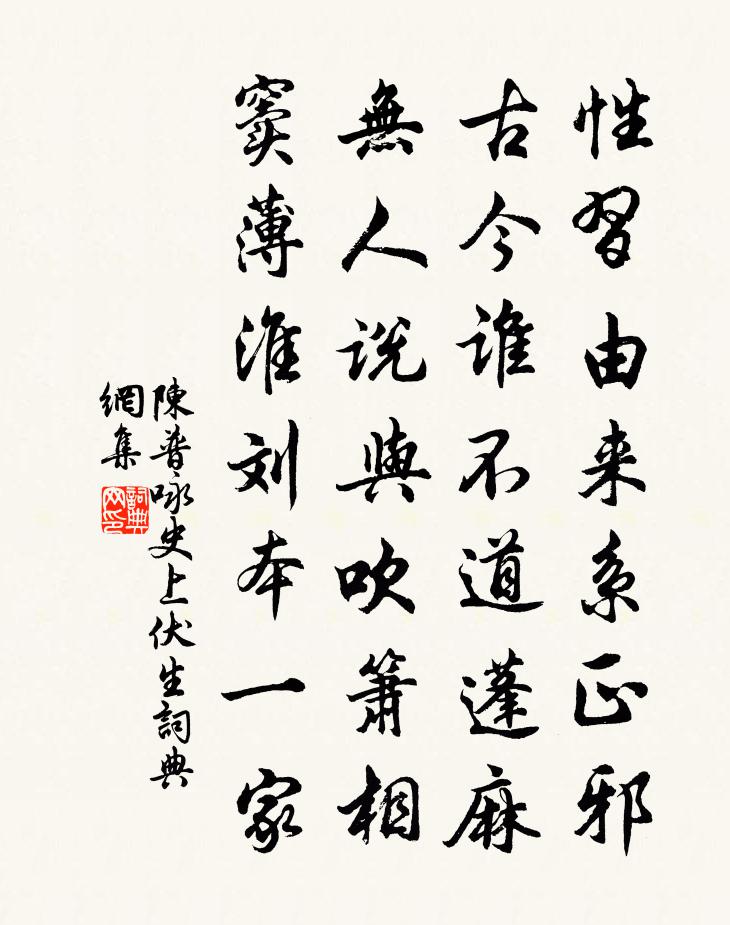 性習由来系正邪
古今誰不道蓬麻
無人説與吹簫相
竇薄淮刘本一家
陳普咏史上伏生詞典
網集
詞典
网印